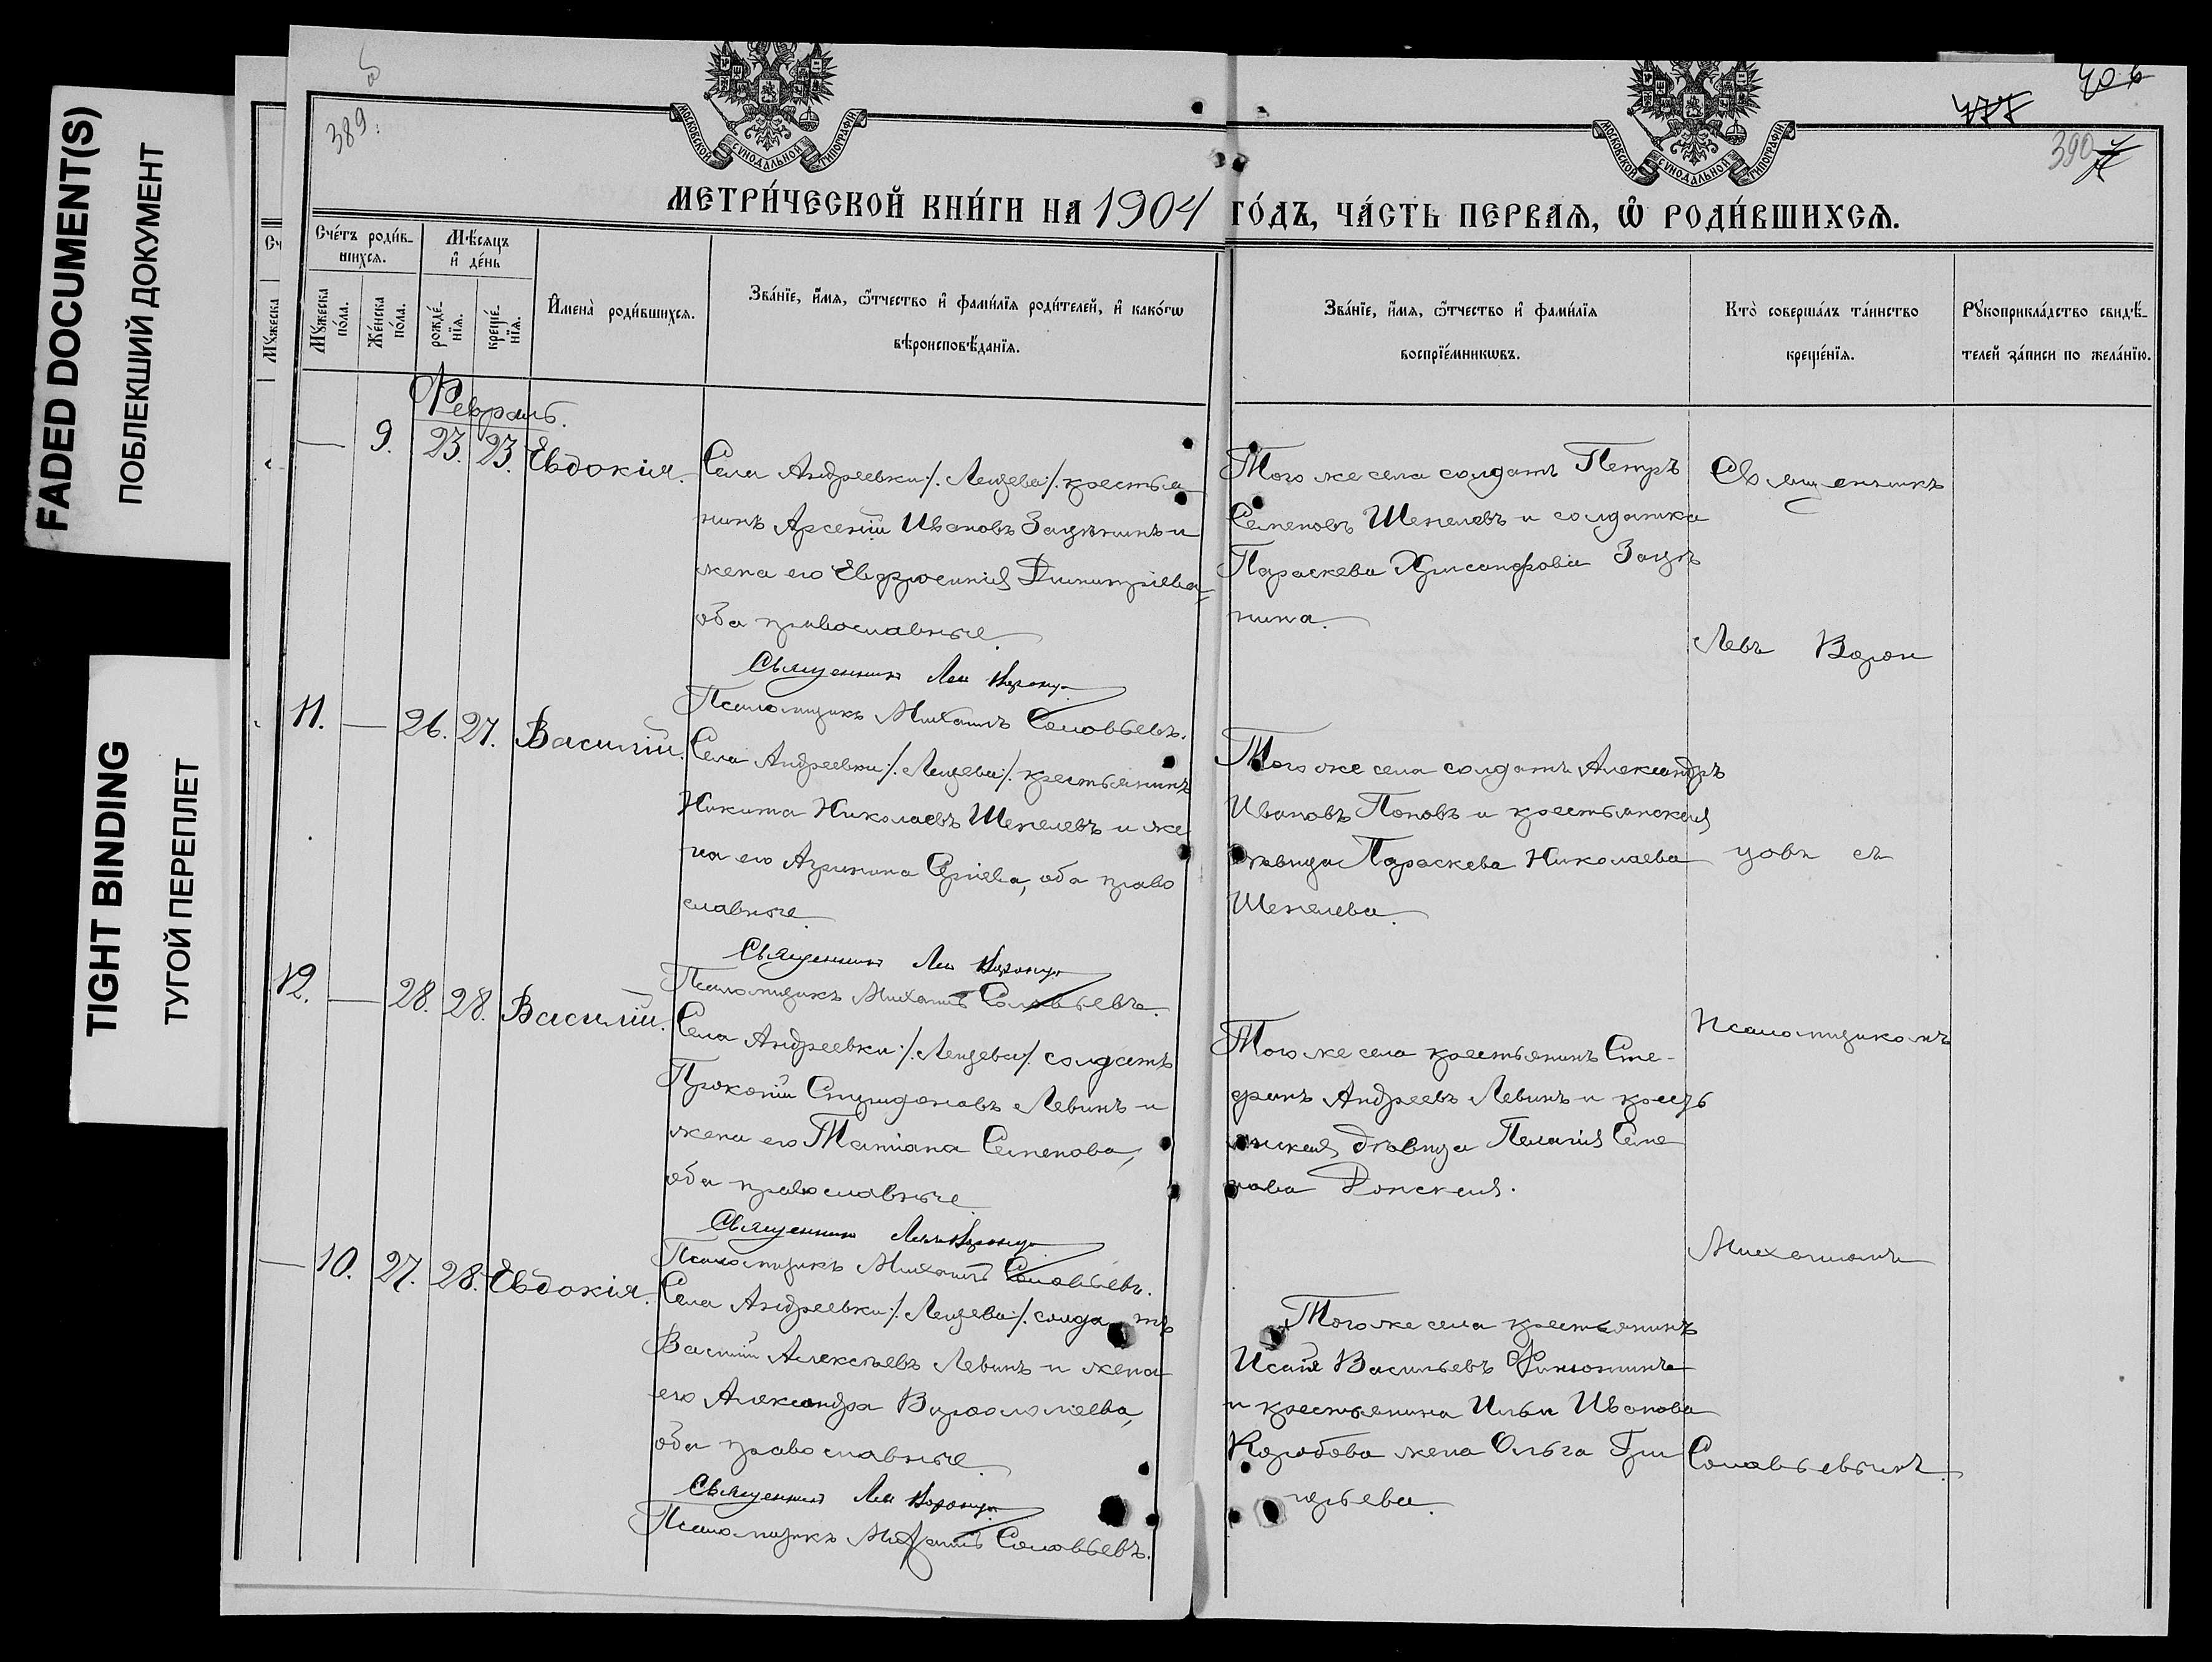 FADED DOCUMENT(S)
ПОБЛЕКШИЙ ДОКУМЕНТ
TIGHT BINDING
ТУГОЙ ПЕРЕПЛЕТ
389
390
МОСКОВСКОЙ СѴНОДАЛЬНОЙ ТИПОГРАФІИ
МОСКОВСКОЙ СѴНОДАЛЬНОЙ ТИПОГРАФІИ
МЕТРИ́ЧЕСКОЙ КНИ́ГИ НА 1904 ГО́ДЪ, ЧА́СТЬ ПЕРВАѦ, Ѿ РОДИ́ВШИХСѦ.
Сче́тъ роди́в-
шихсѧ.
Мѣ́сѧцъ
и҆ де́нь
Мꙋ́жеска
по́ла.
Же́нска
по́ла.
рожде́-
нїѧ.
креще́-
нїѧ.
И҆мена̀ роди́вшихсѧ.
Зва́нїе, и҆́мѧ, ѻ҆́тчество и҆ фами́лїѧ роди́телей, и҆ како́гѡ
вѣроисповѣ́данїѧ.
Зва́нїе, и҆́мѧ, ѻ҆́тчество и҆ фами́лїѧ
воспрїе́мникѡвъ.
Кто̀ соверша́лъ та́инство
креще́нїѧ.
Рꙋкоприкла́дство свидѣ́-
телей за́писи по жела́нїю.
Февраль.
— 9. 23. 23. Евдокія.
Села Андреевки /. Лещева /. крестья
нинъ Арсеній Ивановъ Зацѣпинъ и
жена его Евфросинія Димитріева,
оба православные.
Священникъ Левъ Воронцо
Псаломщикъ Михаилъ Соловьевъ.
Того же села солдатъ Петръ
Семеновъ Шепелевъ и солдатка
Параскева Хрисанфова Зацѣ
пина.
11. — 26. 27. Василій.
Села Андреевки /. Лещева /. крестьянинъ
Никита Николаевъ Шепелевъ и же
на его Агриппина Сергіева, оба право
славные.
Священникъ Левъ Воронцо
Псаломщикъ Михаилъ Соловьевъ.
Того же села солдатъ Александръ
Ивановъ Поповъ и крестьянская
дѣвица Параскева Николаева
Шепелева.
12. — 28. 28. Василій.
Села Андреевки /. Лещева /. солдатъ
Прокопій Спиридоновъ Левинъ и
жена его Татіана Семенова,
оба православные
Священникъ Левъ Воронцо
Псаломщикъ Михаилъ Соловьевъ.
Того же села крестьянинъ Сте-
фанъ Андреевъ Левинъ и кресть
янская дѣвица Пелагія Семе
нова Донская.
— 10. 27. 28. Евдокія.
Села Андреевки /. Лещева /. солдатъ
Василій Алексѣевъ Левинъ и жена
его Александра Варѳоломеева,
оба православные.
Священникъ Левъ Воронцо
Псаломщикъ Михаилъ Соловьевъ.
Того же села крестьянинъ
Исаія Васильевъ
и крестьянина Ильи Иванова
Коробова жена Ольга Гри
горьева.
Священникъ
Левъ Ворон
цовъ съ
Псаломщикомъ
Михаиломъ
Соловьевымъ.